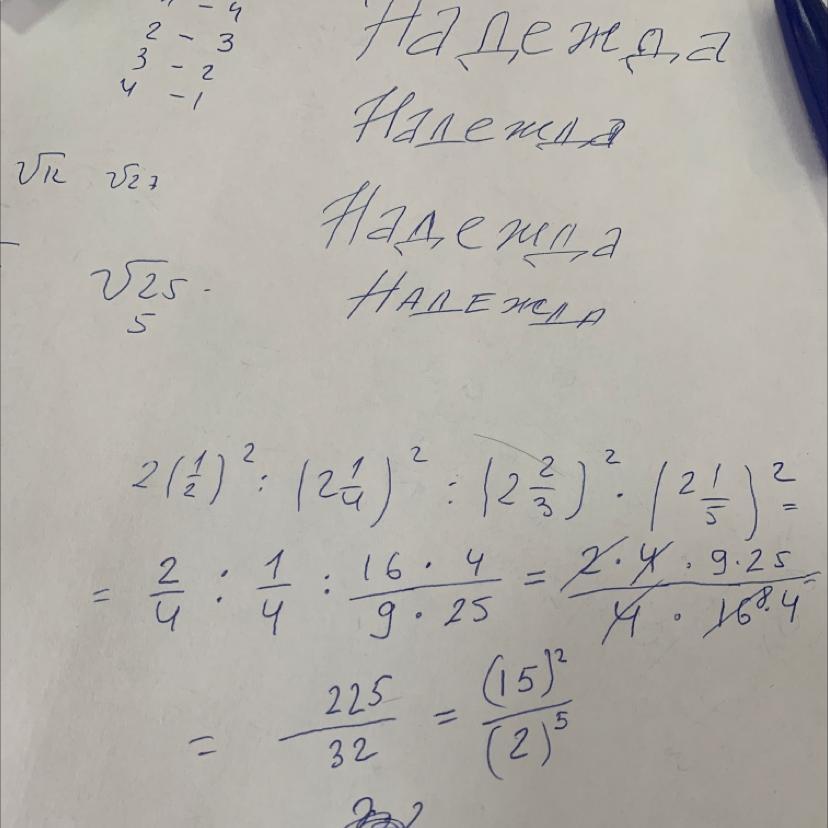 1 - 4
2 - 3
3 - 2
4 - 1
Надежда
Надежда
Надежда
Надежда
√12 √27
√25
5
2(1/2)² : (2 1/4)² : (2 2/3)² · (2 1/5)² =
= 2/4 : 1/4 : (16 · 4)/(9 · 25) = (2 · 4 · 9 · 25)/(4 · 16 8 · 4) =
= 225/32 = (15)²/(2)⁵